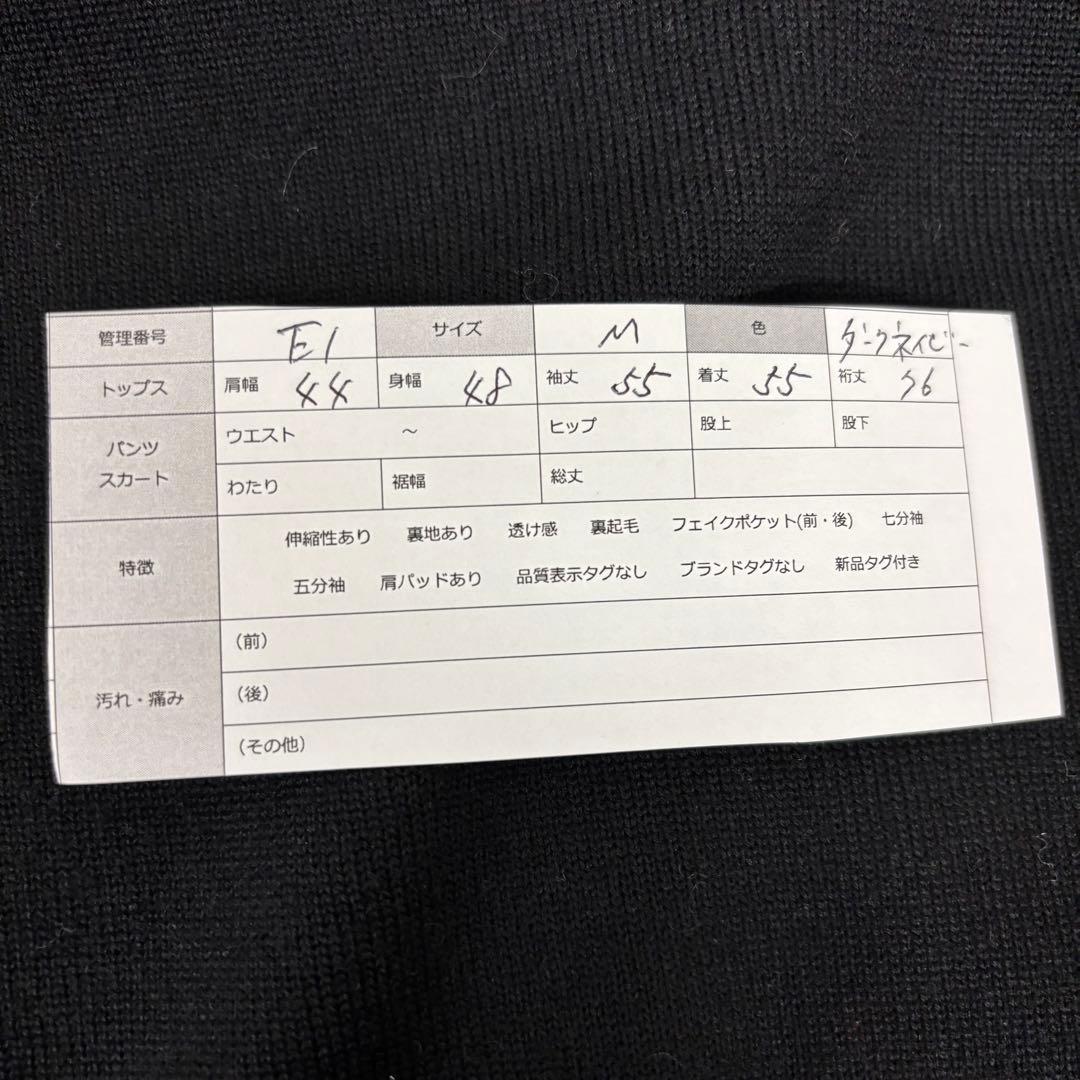 管理番号 E1 サイズ M 色 ダークネイビー
トップス 肩幅 44 身幅 48 袖丈 55 着丈 55 裄丈 76
パンツ スカート ウエスト ～ ヒップ 股上 股下
わたり 裾幅 総丈
特徴 伸縮性あり 裏地あり 透け感 裏起毛 フェイクポケット(前・後) 七分袖
五分袖 肩パッドあり 品質表示タグなし ブランドタグなし 新品タグ付き
汚れ・痛み (前)
(後)
(その他)